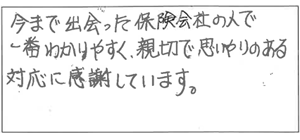 今まで出会った保険会社の人で
一番わかりやすく、親切で思いやりのある
対応に感謝しています。